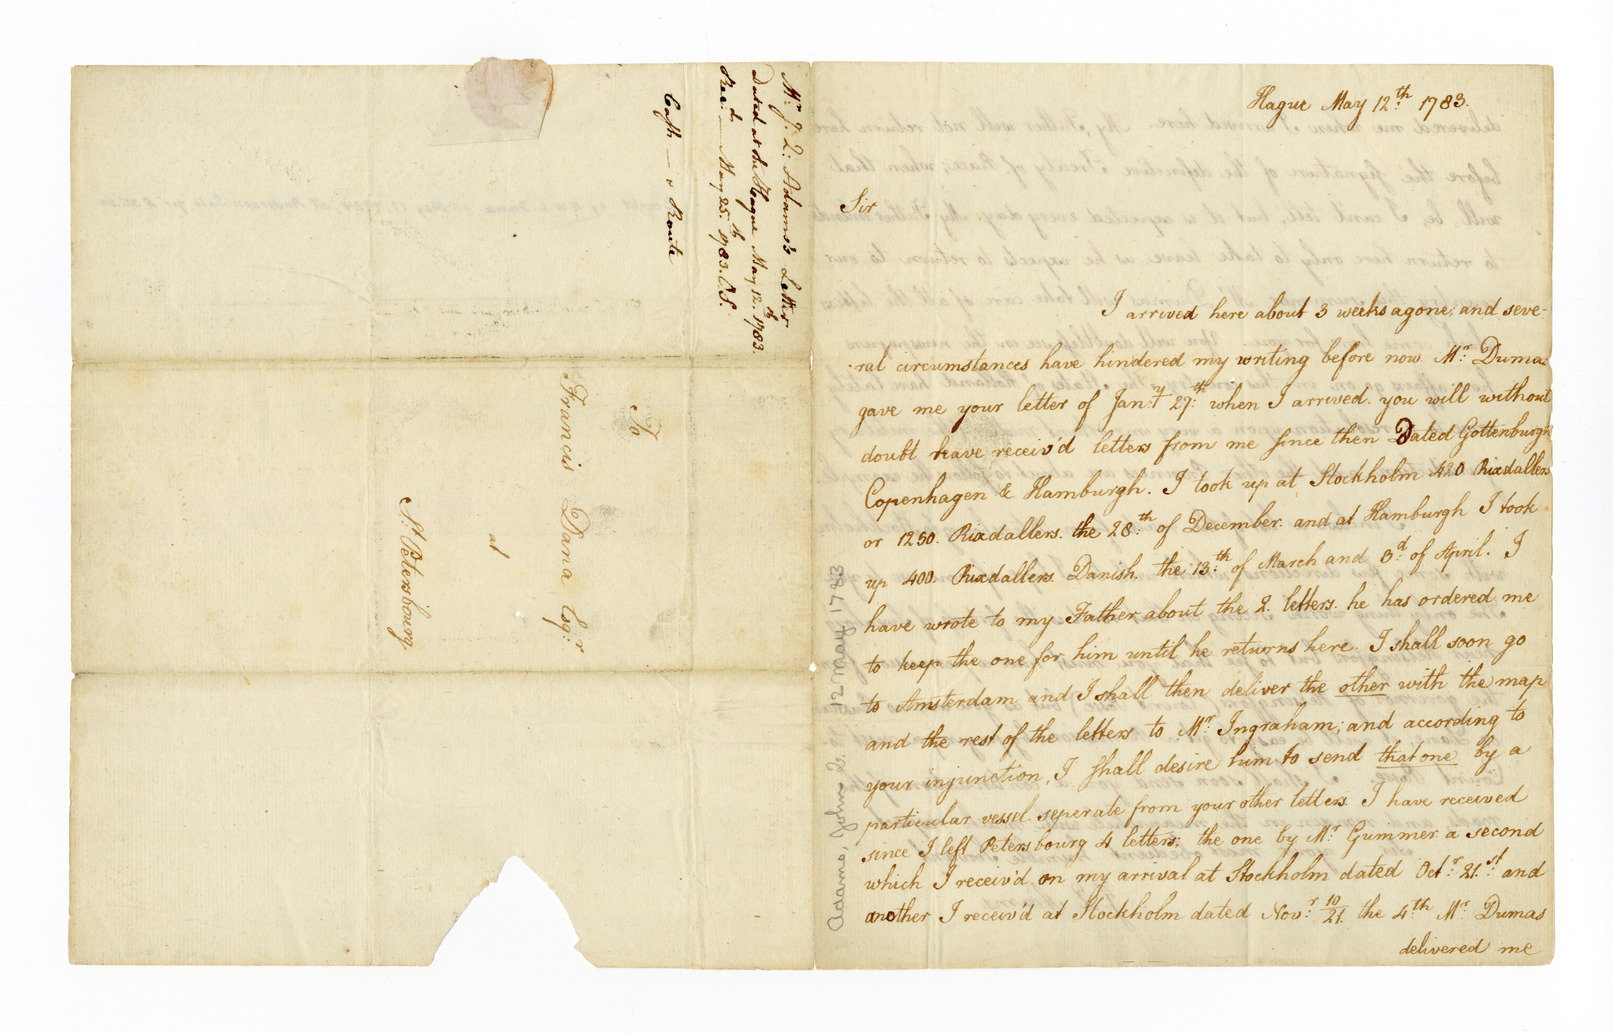 Mr: J. Q: Adams's Letter
Dated at the Hague May 12.th 1783.
Recd: — May 25.th 1783. O.S.
Cash — & Route
To
Francis Dana Esqr:
at
St: Petersbourg.
Adams, John Q. 12 May 1783
Hague May 12th: 1783.
Sir
I arrived here about 3 weeks agone, and seve-
-ral circumstances have hindered my writing before now. Mr: Dumas
gave me your letter of Jany: 27th: when I arrived. you will without
doubt have receiv'd letters from me since then Dated Gottenburgh
Copenhagen & Hamburgh. I took up at Stockholm Rixdallers
or 1250. Rixdallers. the 28:th of December. and at Hamburgh I took
up 400. Rixdallers Danish. the 13:th of March and 3:d of April. I
have wrote to my Father about the 2. letters. he has ordered me
to keep the one for him until he returns here. I shall soon go
to Amsterdam and I shall then deliver the other with the map
and the rest of the letters to Mr: Ingraham; and according to
your injunction, I shall desire him to send that one by a
particular vessel. seperate from your other letters. I have received
since I left Petersbourg 4 letters; the one by Mr: Gummer. a second
which I receiv'd on my arrival at Stockholm dated Octr: 21.st: and
another I receiv'd at Stockholm dated Novr: 10/21. the 4:th Mr: Dumas
delivered me